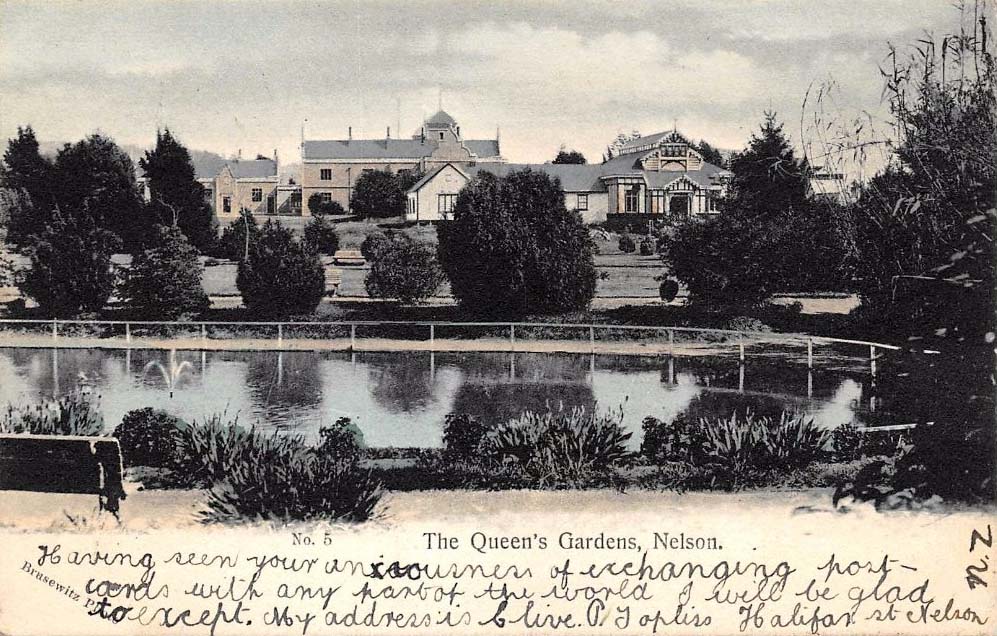 No. 5 The Queen's Gardens, Nelson.
N.Z
Brusewitz
Having seen your anxiousness of exchanging post-
cards with any part of the world I will be glad
to except. My address is Clive. P Topliss Halifax st Nelson